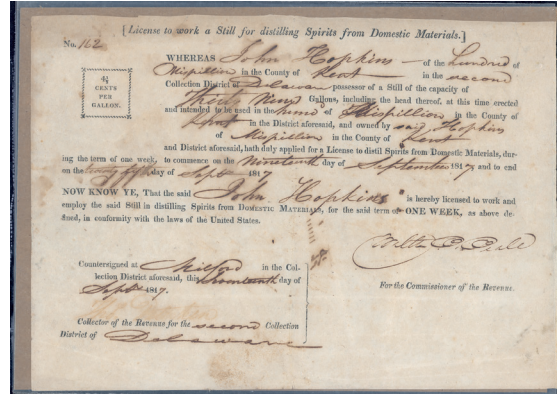 [License to work a Still for distilling Spirits from Domestic Materials.]
No. 162
4½
CENTS
PER
GALLON.
WHEREAS John Hopkins of the Hundred of
Mispillion in the County of Kent in the second
Collection District of Delaware possessor of a Still of the capacity of
Thirty Nine Gallons, including the head thereof, at this time erected
and intended to be used in the hund of Mispillion in the County of
Kent in the District aforesaid, and owned by said Hopkins
of Mispillion in the County of Kent
and District aforesaid, hath duly applied for a License to distil Spirits from Domestic Materials, dur-
ing the term of one week, to commence on the Nineteenth day of September 1817 and to end
on the twenty fifth day of Sept 1817
NOW KNOW YE, That the said John Hopkins is hereby licensed to work and
employ the said Still in distilling Spirits from DOMESTIC MATERIALS, for the said term of ONE WEEK, as above de-
fined, in conformity with the laws of the United States.
Countersigned at Milford in the Col-
lection District aforesaid, this day of
Sept 1817.
For the Commissioner of the Revenue.
Collector of the Revenue for the second Collection
District of Delaware